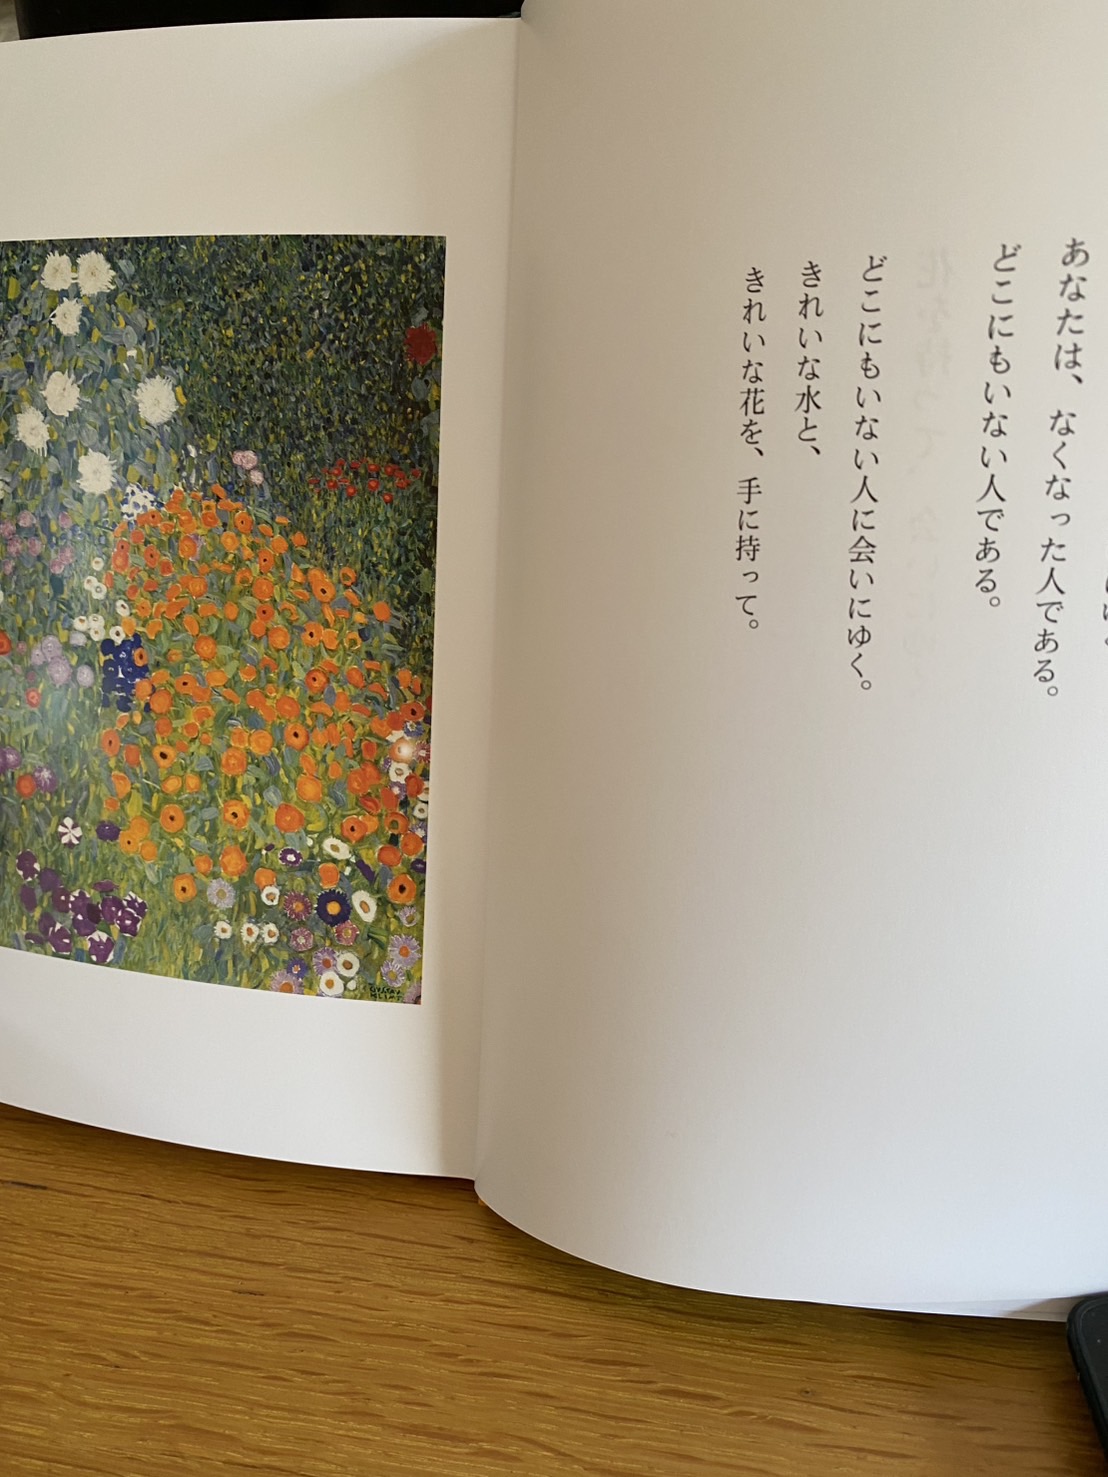 あなたは、なくなった人である。
どこにもいない人である。
どこにもいない人に会いにゆく。
きれいな水と、
きれいな花を、手に持って。
GUSTAV
KLIMT